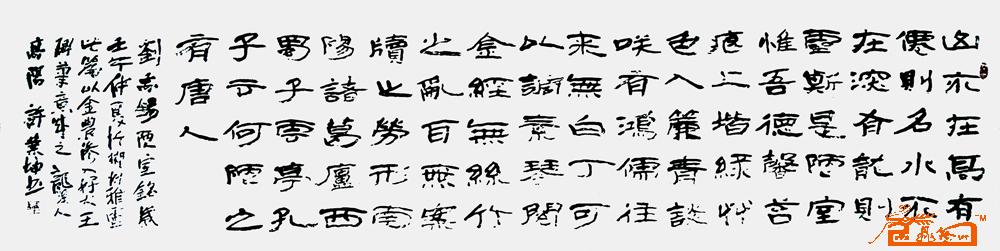 山不在高有
僊則名水不
在深有龍則
靈斯是陋室
惟吾德馨苔
痕上堦綠艸
色入簾青談
咲有鴻儒往
来無白丁可
以調素琴閱
金經無絲竹
之亂耳無案
牘之勞形南
陽諸葛廬西
蜀子雲亭孔
子云何陋之
有唐人
劉禹錫陋室銘歲
壬午仲夏於湖
以金農滲入好大王
碑筆意
高陽許